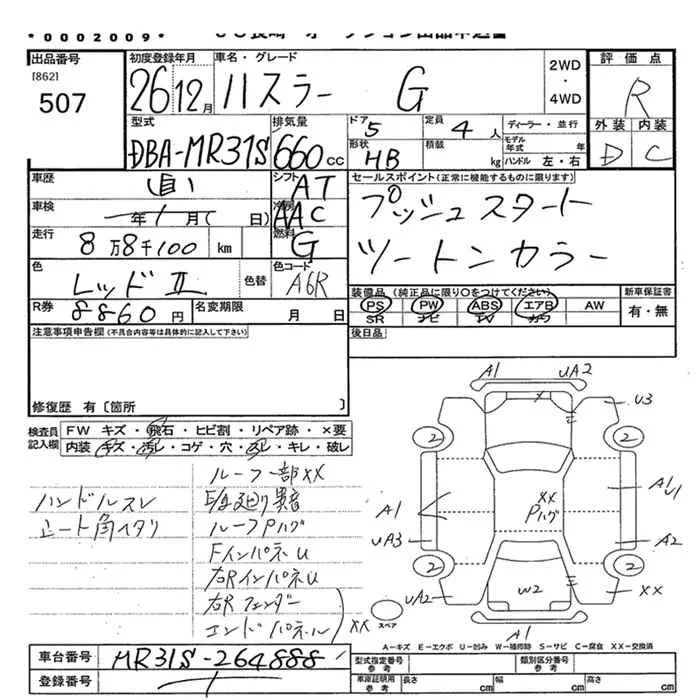 *0002009*
出品番号
[862]
507
初度登録年月
26年12月
車名・グレード
ハスラー G
2WD
・
4WD
評価点
R
外装 内装
D C
型式
DBA-MR31S
排気量
660cc
ドア 5
形状 HB
定員 4人
積載 kg
ディーラー・並行
モデル年式 年
ハンドル 左・右
車歴
シフト AT
車検 年 月( 日)
冷房 AAC
走行 8万8千100 km
燃料 G
色 レッドⅡ 色替
色コード A6R
R券 8860円
名変期限 月 日
セールスポイント(正常に機能するものに限ります)
プッシュスタート
ツートンカラー
装備品(純正品に限り○をつけてください)
PS PW ABS エアB AW
SR ナビ TV カワ
新車保証書
有・無
後日品
注意事項申告欄(不具合内容等は具体的に記入して下さい)
修復歴 有〔箇所 〕
検査員記入欄
FW キズ・飛石・ヒビ割・リペア跡・×要
内装 キズ・汚レ・コゲ・穴・スレ・キレ・破レ
ハンドルスレ
シート角ヘタリ
ルーフ一部XX
ルーフPハグ
FインパネU
右RインパネU
右Rフェンダー
エンドパネル XX
A1 UA2
U3
2 2
A1
XX
Pハグ
A1
U1
UA3
A2
2 2
UA2
W2
XX
A1
スペア
A-キズ E-エクボ U-凹み W-補修跡 S-サビ C-腐食 XX-交換済
車台番号 MR31S-264888
登録番号
型式指定番号 参考
類別区分番号 参考
車庫証明用 参考
長さ cm 幅 cm 高さ cm